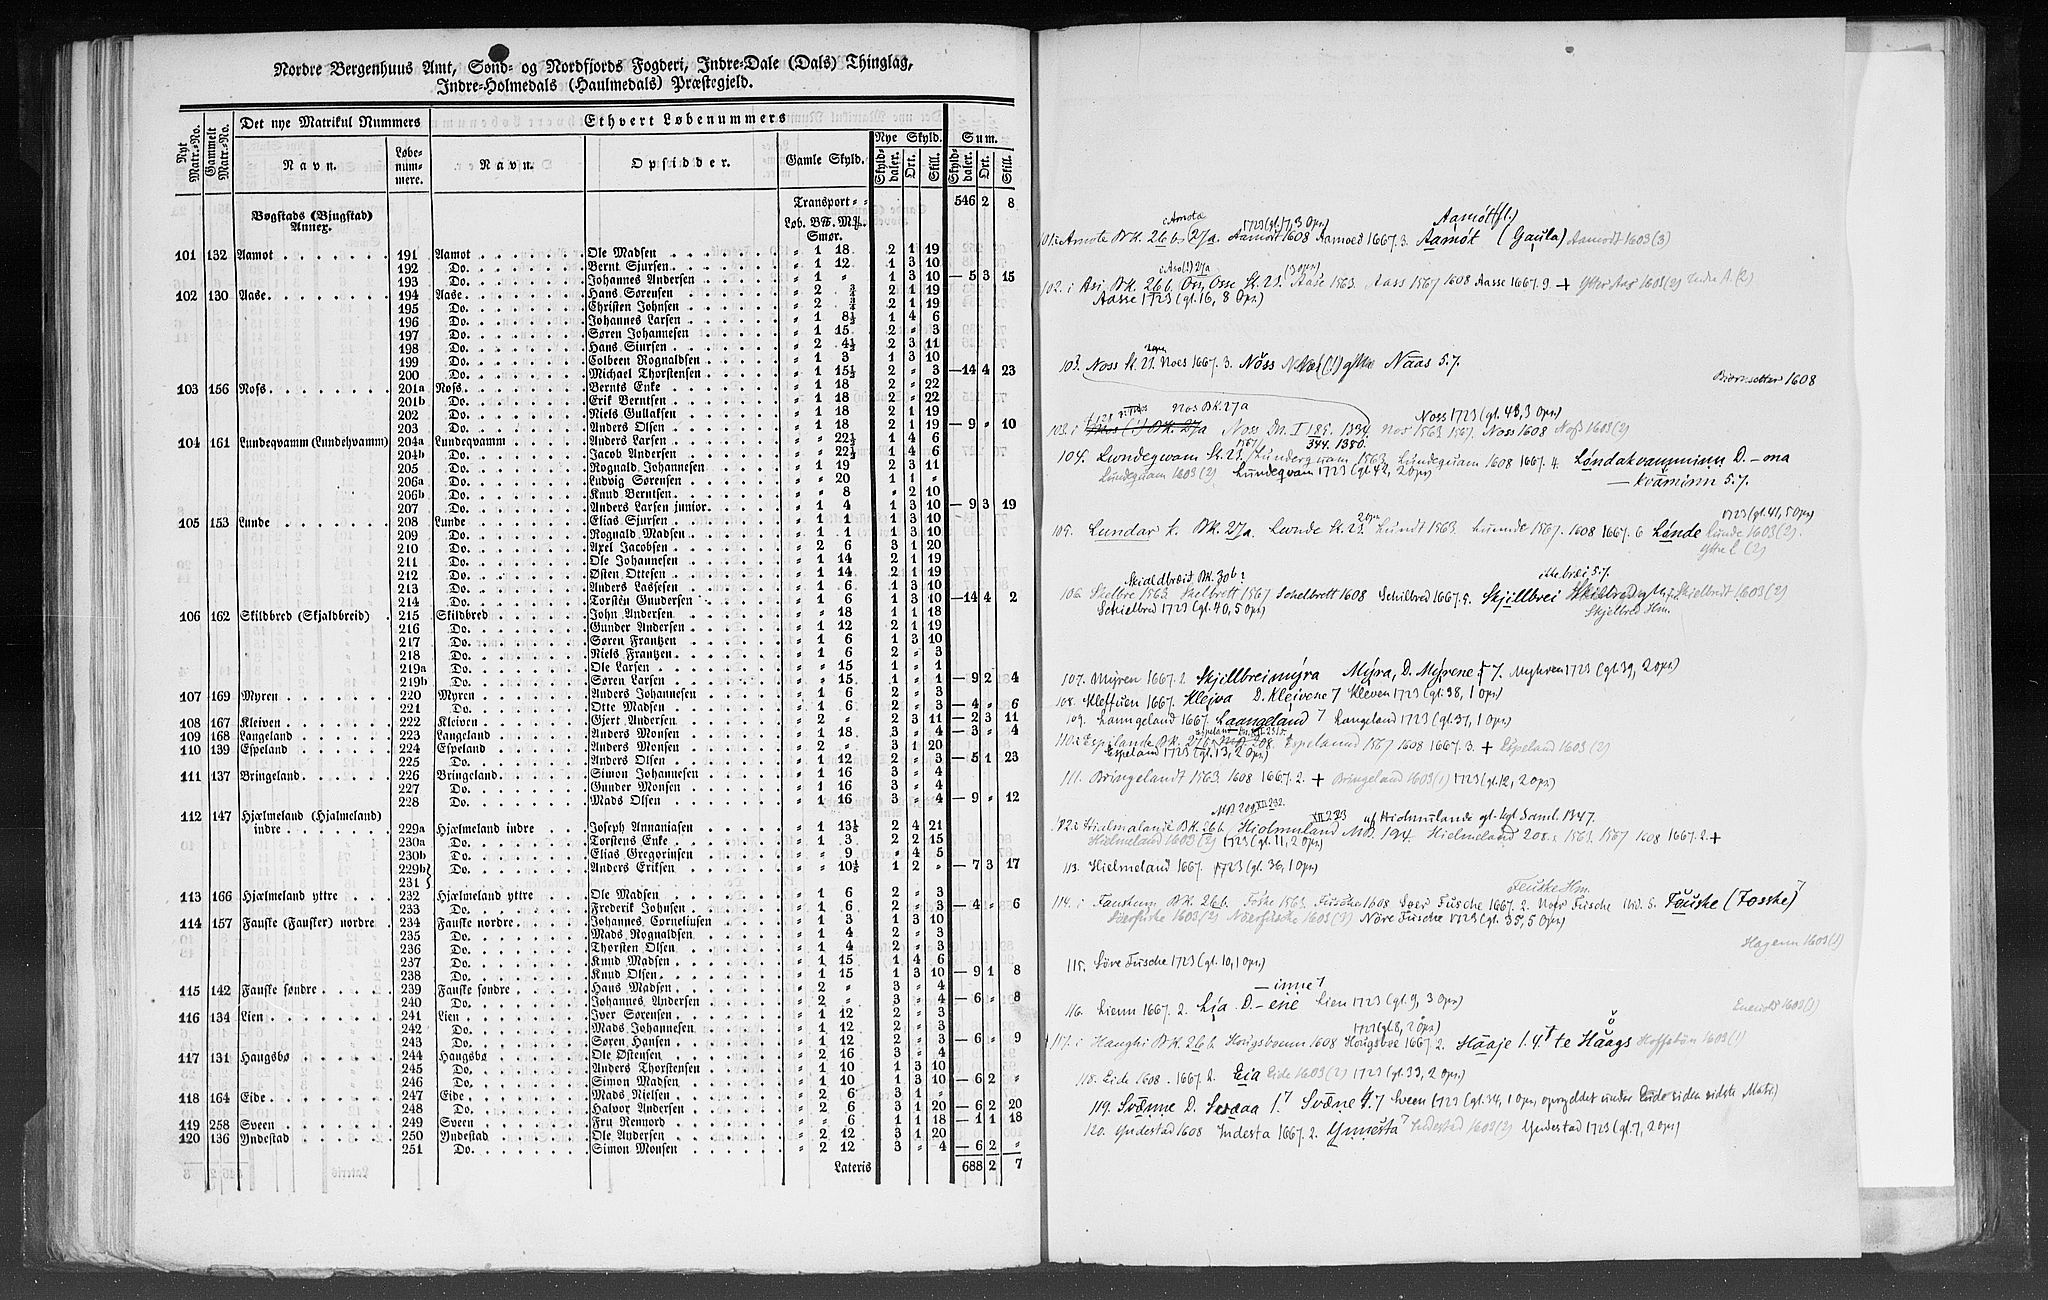 Nordre Bergenhuus Amt, Sønd- og Nordfjords Fogderi, Indre-Dale (Dals) Thinglag,
Indre-Holmedals (Haulmedals) Præstegjeld.
Nyt Matr.-No. Gammelt Matr.-No. Det nye Matrikul Nummers Ethvert Løbenummers
Navn. Løbe-nummere. Navn. Opsidder. Gamle Skyld. Nye Skyld. Sum.
Skylddaler. Ort. Skill. Skylddaler. Ort. Skill.
Transport 546 2 8
Bøgstads (Bjugstad) Annex. Løb. Smør.
101 132 Aamot 191 Aamot Ole Madsen " 1 18 2 1 19
192 Do. Bernt Sjursen " 1 12 1 3 10
193 Do. Johannes Andersen " 1 " 1 3 10 —5 3 15
102 130 Aase 194 Aase Hans Sørensen " 2 ¾ 2 1 19
195 Do. Christen Johnsen " 2 ¾ 2 1 19
196 Do. Johannes Larsen " 1 8½ 1 4 6
197 Do. Søren Johannesen " 1 15 2 " 3
198 Do. Hans Siursen " 2 4½ 2 3 11
199 Do. Colbeen Rognaldsen " 1 3 1 3 10
200 Do. Michael Thorstensen " 1 15½ 2 " 3 —14 4 23
103 156 Noss 201a Noss Bernts Enke " 1 18 2 " 22
201b Do. Erik Berntsen " 1 18 2 " 22
202 Do. Niels Gullaksen " 1 18 2 1 19
203 Do. Anders Olsen " 1 18 2 1 19 —9 " 10
104 161 Lundeqvamm (Lundehvamm) 204a Lundeqvamm Anders Larsen " " 22½ 1 4 6
204b Do. Jacob Andersen " " 22½ 1 4 6
205 Do. Rognald Johannesen " 1 19 2 3 11
206a Do. Ludvig Sørensen " " 20 1 1 "
206b Do. Knud Berntsen " " 8 " 2 10
207 Do. Anders Larsen junior " 1 4 1 3 10 —9 3 19
105 153 Lunde 208 Lunde Elias Sjursen " 1 1 1 3 10
209 Do. Rognald Madsen " 1 1 1 3 10
210 Do. Axel Jacobsen " 2 6 3 1 20
211 Do. Ole Johannesen " 1 14 2 1 19
212 Do. Østen Ottesen " 1 14 2 1 19
213 Do. Anders Lassesen " 1 6 1 3 10
214 Do. Torstén Gundersen " 1 6 1 3 10 —14 4 2
106 162 Skildbred (Skjaldbreid) 215 Skildbred John Andersen " " 18 1 1 18
216 Do. Gunder Andersen " 1 12 2 1 19
217 Do. Søren Frantzen " 1 6 1 3 10
218 Do. Niels Frantzen " 1 6 2 " 3
219a Do. Ole Larsen " " 15 1 " 1
219b Do. Søren Larsen " " 15 1 " 1 —9 2 4
107 169 Myren 220 Myren Anders Johannesen " 1 6 2 " 3
221 Do. Otte Madsen " 1 6 2 " 3 —4 " 6
108 167 Kleiven 222 Kleiven Gjert Andersen " 2 " 2 3 11 —2 3 11
109 168 Langeland 223 Langeland Anders Monsen " 1 18 3 " 4 —3 " 4
110 139 Espeland 224 Espeland Anders Monsen " 2 " 3 1 20
225 Do. Anders Olsen " 1 12 2 " 3 —5 1 23
111 137 Bringeland 226 Bringeland Simon Johannesen " 1 16 3 " 4
227 Do. Gunder Monsen " 1 16 3 " 4
228 Do. Mads Olsen " 1 16 3 " 4 —9 " 12
112 147 Hjælmeland (Hjalmeland)
indre 229a Hjælmeland indre Joseph Annaniasen " 1 13½ 2 4 21
230a Do. Torstens Enke " 1 3 2 2 15
230b Do. Elias Gregoriusen " " 9 " 4 5
229b Do. Anders Eriksen " " 10½ 1 2 " —7 3 17
231
113 166 Hjælmeland yttre 232 Hjælmeland yttre Ole Madsen " 1 6 2 " 3
233 Do. Frederik Johnsen " 1 6 2 " 3 —4 " 6
114 157 Fauske (Fausker) nordre 234 Fauske nordre Johannes Corneliusen " 1 3 1 3 10
235 Do. Mads Rognaldsen " 1 4 2 " 3
236 Do. Thorsten Olsen " 1 4 2 " 3
237 Do. Knud Madsen " 1 15 1 4 6
238 Do. Knud Olsen " 1 15 1 3 10 —9 1 8
115 142 Fauske søndre 239 Fauske søndre Hans Madsen " 2 " 3 " 4
240 Do. Johannes Andersen " 2 " 3 " 4 —6 " 8
116 134 Lien 241 Lien Iver Sørensen " 1 12 2 " 3
242 Do. Mads Johannesen " 1 12 2 " 3
243 Do. Søren Hansen " 1 12 2 " 3 —6 " 9
117 131 Haugsbø 244 Haugsbø Ole Østensen " 2 16 3 " 4
245 Do. Anders Thorstensen " 1 10 1 3 10
246 Do. Simon Madsen " 1 10 1 3 10 —6 2 "
118 164 Eide 247 Eide Mads Nielsen " 2 6 3 1 "
248 Do. Halvor Andersen " 2 6 3 1 20 —6 2 20
119 258 Sveen 249 Sveen Fru Rennord " " 6 1 1 18 —1 1 18
120 136 Yndestad 250 Yndestad Ole Andersen " 2 12 3 1 20
251 Do. Simon Monsen " 2 12 3 " 4 —6 2 "
Lateris 688 2 7
Aamøt (fl.)
1723 (gl. 17, 3 Opn)
101. i Amote BK. 26 b (27a. Aamodt 1608 Aamoed 1667. 3. Aamøt (Gaula) Aamodt 1603 (3)
102. i Asi BK. 26 b. Osse St. 23. Aase 1563. Aass 1567 1608 Aasse 1667. 9. + Ytter Aas 1603 (2) Indre A. (2)
Aasse 1723 (gl. 16, 8 Opn)
103. Noss St. 23. Noes 1667. 3. Nöss Naas 5.7.
Biornsetter 1608
Nos BK. 27a Noss 1723 (gl. 43, 3 Opn)
103. i BK. 27a Noss Dn. I 185. 1334 Nos 1563 1567. Noss 1608 Noss 1603 (2)
344. 1350.
104. Londeqwam St. 23. Lundequam 1563. Lundequam 1608 1667. 4. Londakvamminn D. – ona
Lundequam 1603 (2) Lundeqvam 1723 (gl. 42, 2 Opn) — kvaminn 5.7.
1723 (gl. 41, 5 Opn)
105. Lundar k. BK. 27a. Londe St. 23. Lundt 1563. Lunde 1567. 1608 1667. 6 Londe Lunde 1603 (2).
Ytre L (2)
Skialdbreit BK. 30b? ikke bræi 5.7.
106. Skelbre 1563. Skelbrett 1567 Schelbrett 1608 Schilbred 1667. 5. Skjillbrei Skjelbredt 1603 (2)
Schielbred 1723 (gl. 40, 5 Opn) Skjelbred Hm.
107. Myren 1667. 2 Skjillbreimyra Myra, D. Myrene 5 7. Myhren 1723 (gl. 39, 2 Opn)
108. Kleffuen 1667. Klejva D. Klejvene 7 Kleven 1723 (gl. 38, 1 Opn)
109. Lanngeland 1667. Laangeland 7 Langeland 1723 (gl. 37, 1 Opn)
110. i Espilande BK. 27b. Espeland 1567 1608 1667. 3. + Espeland 1603 (2)
Espeland 1723 (gl. 13, 2 Opn)
111. Bringelandt 1563 1608 1667. 2. + Bringeland 1603 (1) 1723 (gl. 12, 2 Opn)
112. i Hialmalande BK. 26b. Hiolmuland MB. 194. Hielmeland 208. 1563. 1567 1608 1667. 2 +
Hielmeland 1603 (2) 1723 (gl. 11, 2 Opn)
113. Hielmeland 1667. 1723 (gl. 36, 1 Opn)
Feuske Hm.
114. i Fauskum BK. 26b. Föske 1563. Fusche 1608 Soer Fusche 1667. 2. Noer Fusche ibid. 5. Fauske (Fosske) 7
Nöre Fusche 1723 (gl. 35, 5 Opn)
Hagenn 1603 (1)
115. Söre Fusche 1723 (gl. 10, 1 Opn)
— inne 7
116. Lienn 1667. 2. Lia D. – ene Lien 1723 (gl. 9, 3 Opn)
1723 (gl. 8, 2 Opn)
117. i Haughi BK. 26b. Hougsboun 1608 Hougsboe 1667. 2. Haaje 1. 4. 7 te Haags 1603 (1)
118. Eide 1608. 1667. 2. Eia Eide 1603 (2) 1723 (gl. 33, 2 Opn)
119. Svænne D. 1. 7 Svæne 4. 7 Sveen 1723 (gl. 34, 1 Opn, opryddet under Eide siden sidste Matr.)
120. Yndestad 1608 Indesta 1667. 2. Ynnesta 7 Indestad 1603 (2) Yndestad 1723 (gl. 7, 2 Opn)